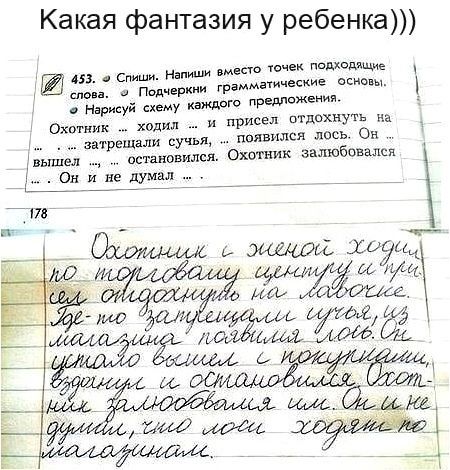 Какая фантазия у ребенка)))
453. • Спиши. Напиши вместо точек подходящие
слова. • Подчеркни грамматические основы.
• Нарисуй схему каждого предложения.
Охотник ... ходил ... и присел отдохнуть на
... . ... затрещали сучья, ... появился лось. Он ...
вышел ..., ... остановился. Охотник залюбовался
... . Он и не думал ... .
178
Охотник с женой ходил
по торговому центру и при-
сел отдохнуть на лавочке.
Где-то затрещали сучья, из
магазина появился лось. Он
устало вышел с покупками,
вздохнул и остановился. Охот-
ник залюбовался им. Он и не
думал, что лоси ходят по
магазинам.